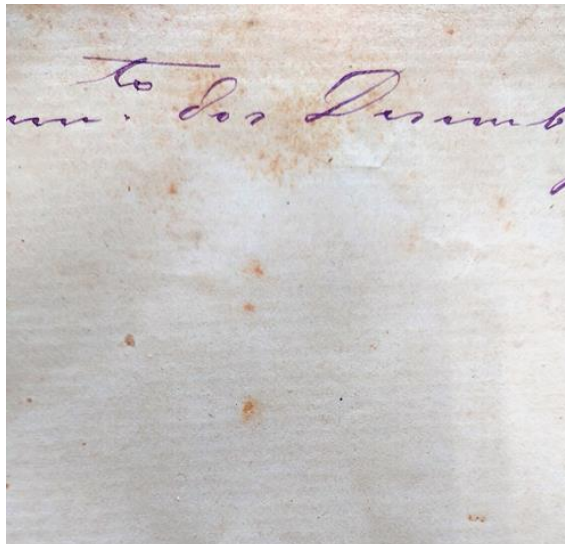 to
dos Desemb